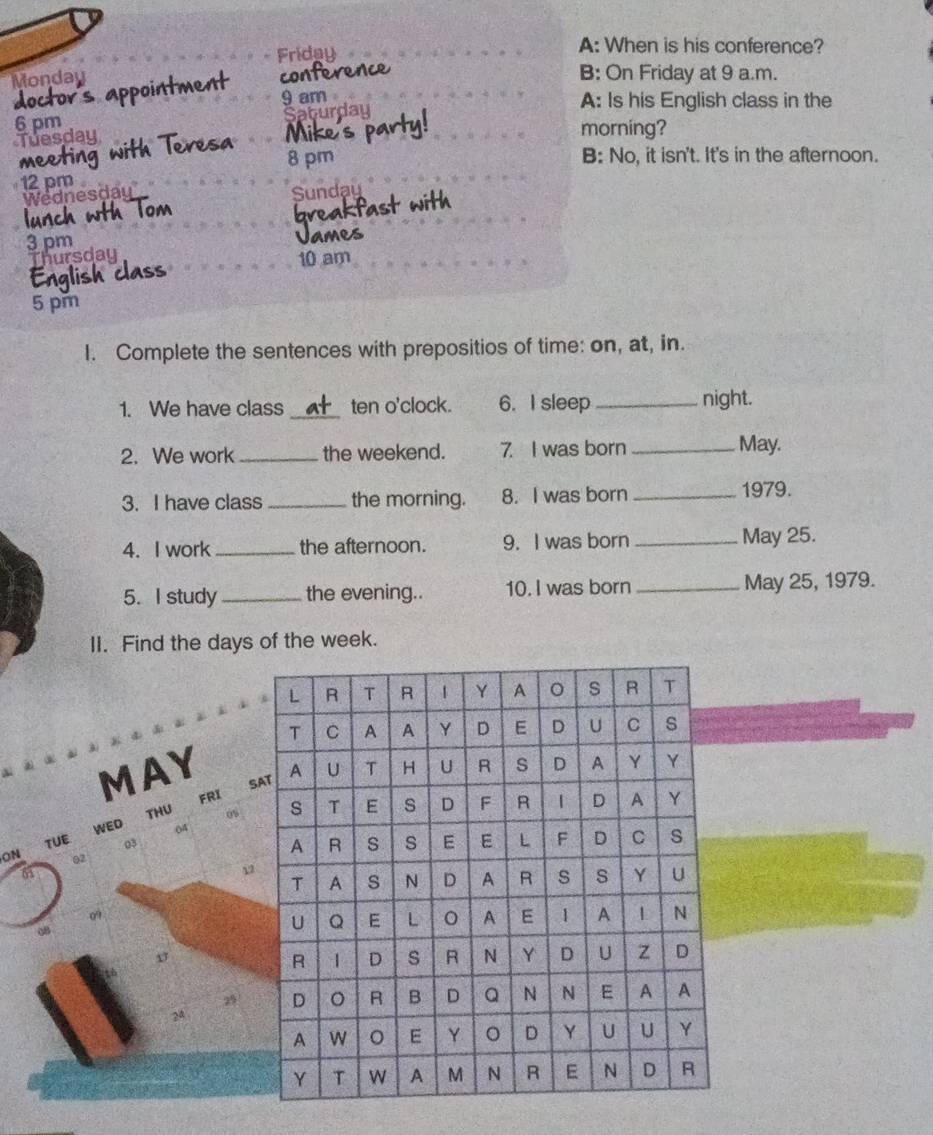 Monday
doctor's appointment
6 pm
Tuesday
meeting with Teresa
12 pm
Wednesday
lunch wth Tom
3 pm
Thursday
English class
5 pm
Friday
conference
9 am
Saturday
Mike's party!
8 pm
Sunday
breakfast with
James
10 am
A: When is his conference?
B: On Friday at 9 a.m.
A: Is his English class in the
morning?
B: No, it isn't. It's in the afternoon.
I. Complete the sentences with prepositios of time: on, at, in.
1. We have class at ten o'clock.
2. We work ________ the weekend.
3. I have class ________ the morning.
4. I work ________ the afternoon.
5. I study ________ the evening..
6. I sleep ________ night.
7. I was born ________ May.
8. I was born ________ 1979.
9. I was born ________ May 25.
10. I was born ________ May 25, 1979.
II. Find the days of the week.
MAY
ON TUE WED THU FRI SAT
01 02 03 04 05
08 09 12
16 17
24 25
L R T R I Y A O S R T
T C A A Y D E D U C S
A U T H U R S D A Y Y
S T E S D F R I D A Y
A R S S E E L F D C S
T A S N D A R S S Y U
U Q E L O A E I A I N
R I D S R N Y D U Z D
D O R B D Q N N E A A
A W O E Y O D Y U U Y
Y T W A M N R E N D R